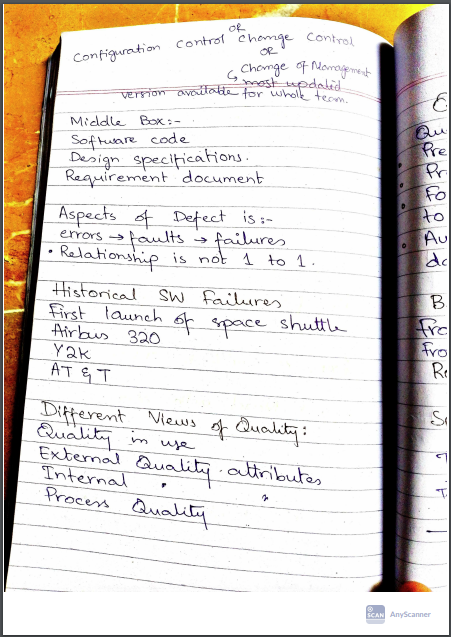 OR
Configuration Control Change Control
OR
↳ Change of Management
most updated
version available for whole team.
Middle Box:-
Software code
Design specifications.
Requirement document
Aspects of Defect is:-
errors → faults → failures
• Relationship is not 1 to 1.
Historical SW Failures
First launch of space shuttle
Airbus 320
Y2K
AT & T
Different Views of Quality:
Quality in use
External Quality attributes
Internal " "
Process Quality
Qu
Pre
• Pr
• Fo
to
• Au
do
B
fro
Fro
R
SCAN AnyScanner